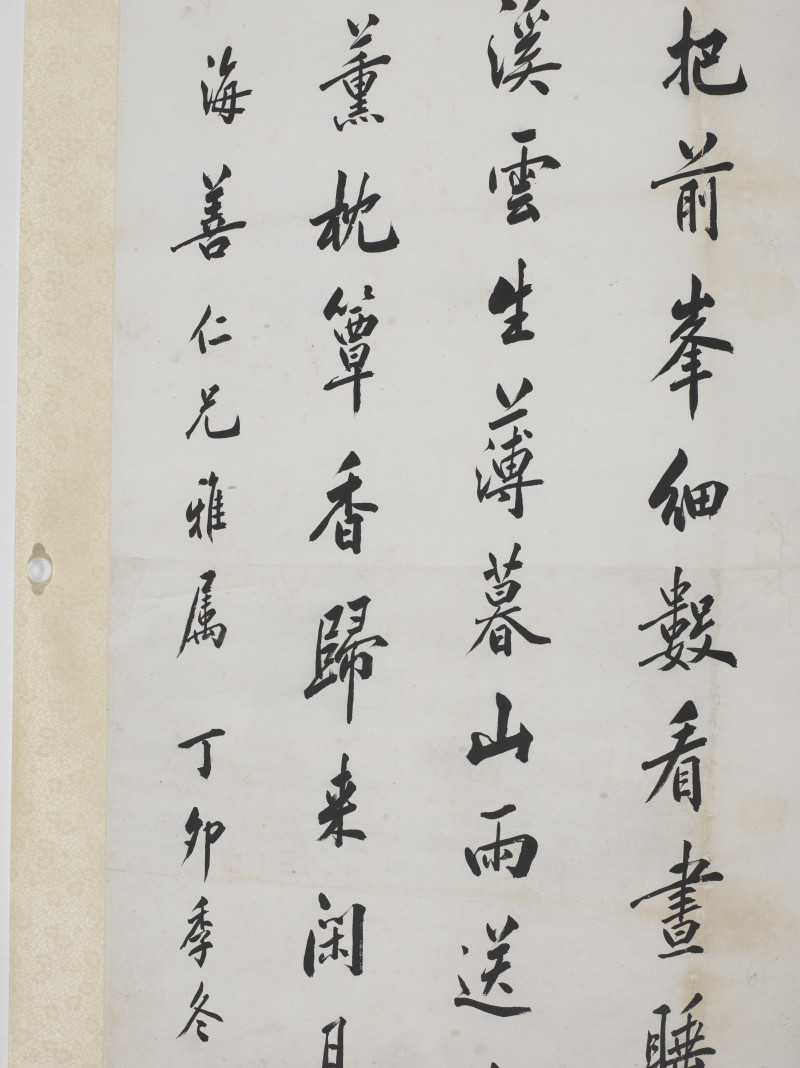 把前峯細數看晝睡
溪雲生薄暮山雨送
薰枕簟香歸来閑
海善仁兄雅属 丁卯季冬